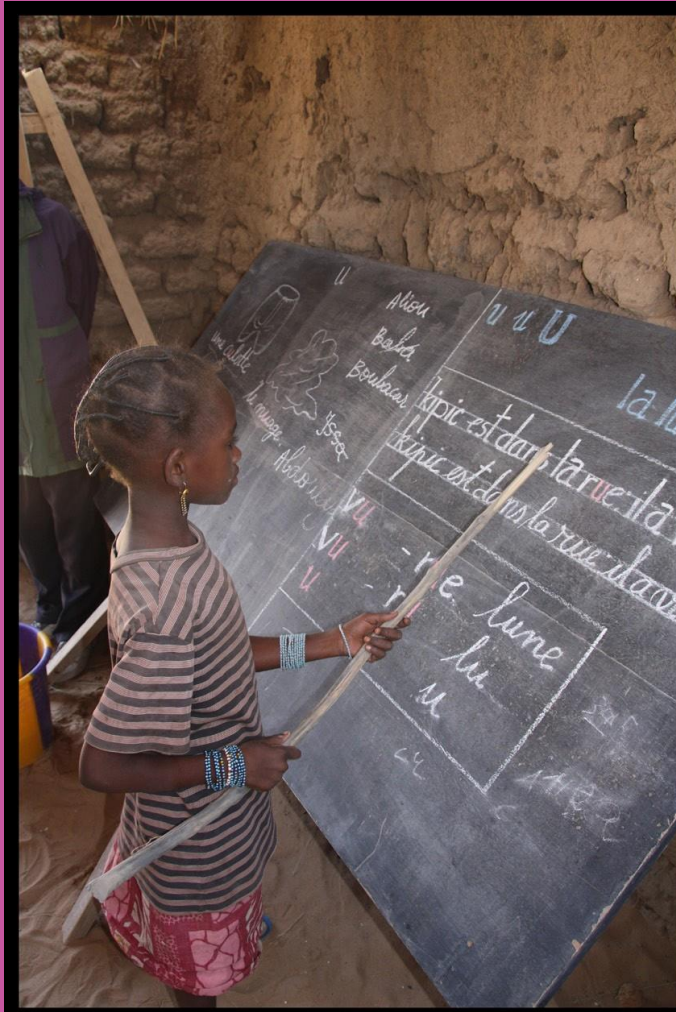 u
une calotte
le nuage
Aliou
Baba
Boubacar
Issa
u u U
la lu
kipic est dans la rue. il a
kipic est dans la rue il a
vu
vu
u
-rue
lune
lu
u